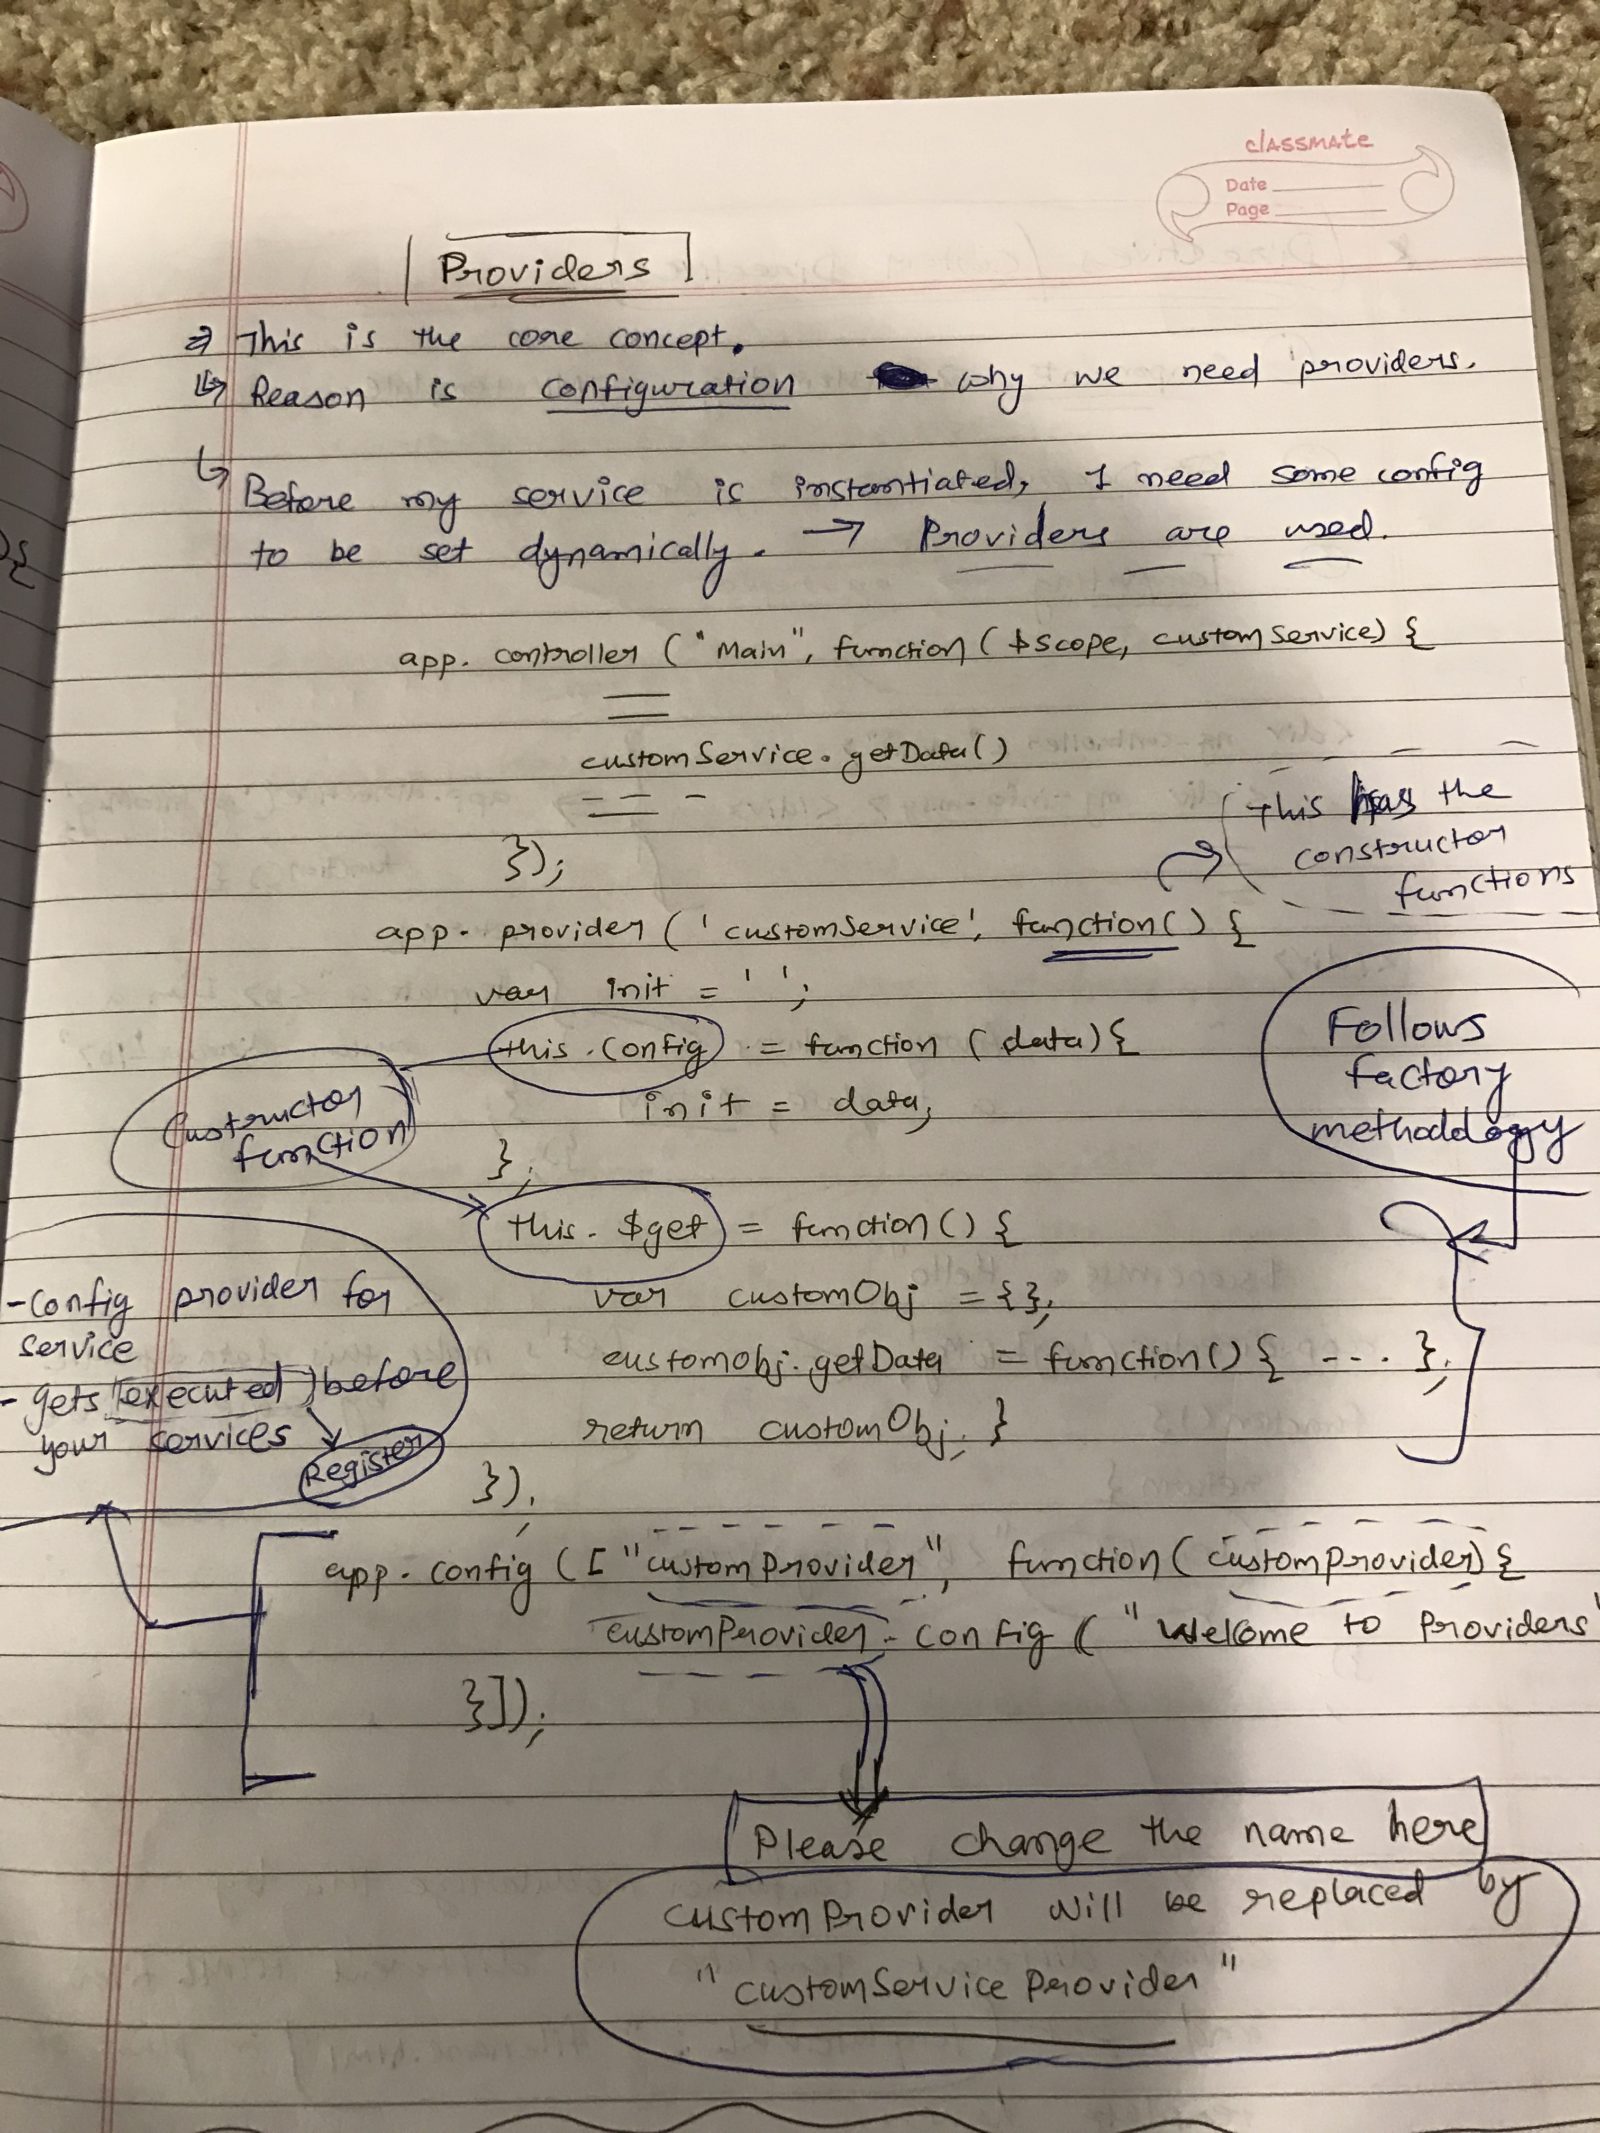 classmate
Date
Page
Providers
This is the core concept.
Reason is configuration why we need providers.
Before my service is instantiated, I need some config
to be set dynamically. → Providers are used.
app. controller ("Main", function ( $scope, customService) {
customService. getData()
});
This has the
constructor
functions
app. provider ('customService', function() {
var init = ' ';
this.config = function (data) {
init = data;
};
Custructor
function
Follows
factory
methoddogy
this. $get = function() {
var customObj = {};
customobj. getData = function() { --- };
return customObj; }
});
- Config provider for
service
- gets executed before
your services
Register
app. config ( [ "customProvider", function ( customprovider) {
customProvider. config ( "Welcome to Providers"
}]);
Please change the name here
customProvider will be replaced by
"customServiceProvider"